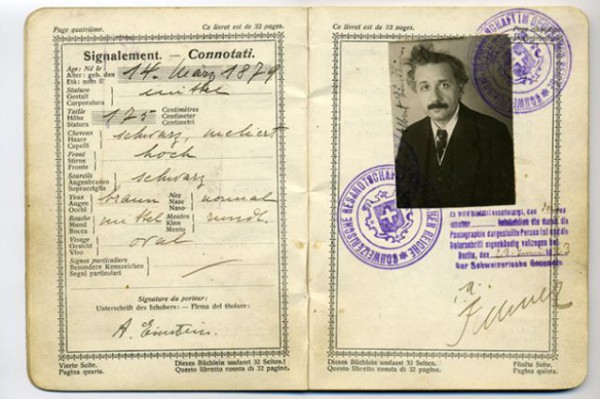 Page quatrième.
Ce livret est de 32 pages.
Signalement. — Connotati.
Age: Né le
Alter: geb. den
Età: nato il
14. März 1879
Stature
Gestalt
Corporatura
mittel
Taille
Höhe
Statura
175
Centimètres
Centimeter
Centimetri
Cheveux
Haare
Capelli
schwarz, meliert
Front
Stirne
Fronte
hoch
Sourcils
Augenbrauen
Sopracciglia
schwarz
Yeux
Augen
Occhi
braun
Nez
Nase
Naso
normal
Bouche
Mund
Bocca
mittel
Menton
Kinn
Mento
rund.
Visage
Gesicht
Viso
oval
Signes particuliers
Besondere Kennzeichen
Segni particolari
Signature du porteur:
Unterschrift des Inhabers: — Firma del titolare:
A. Einstein.
Vierte Seite.
Pagina quarta.
Dieses Büchlein umfasst 32 Seiten.
Questo libretto consta di 32 pagine.
Ce livret est de 32 pages.
Page cinquième.
SCHWEIZERISCHE GESANDTSCHAFT
photographie dargestellte Person ist und die
Unterschrift eigenhändig vollzogen hat.
Berlin, den
Der Schweizerische Gesandte
Dieses Büchlein umfasst 32 Seiten.
Questo libretto consta di 32 pagine.
Fünfte Seite.
Pagina quinta.